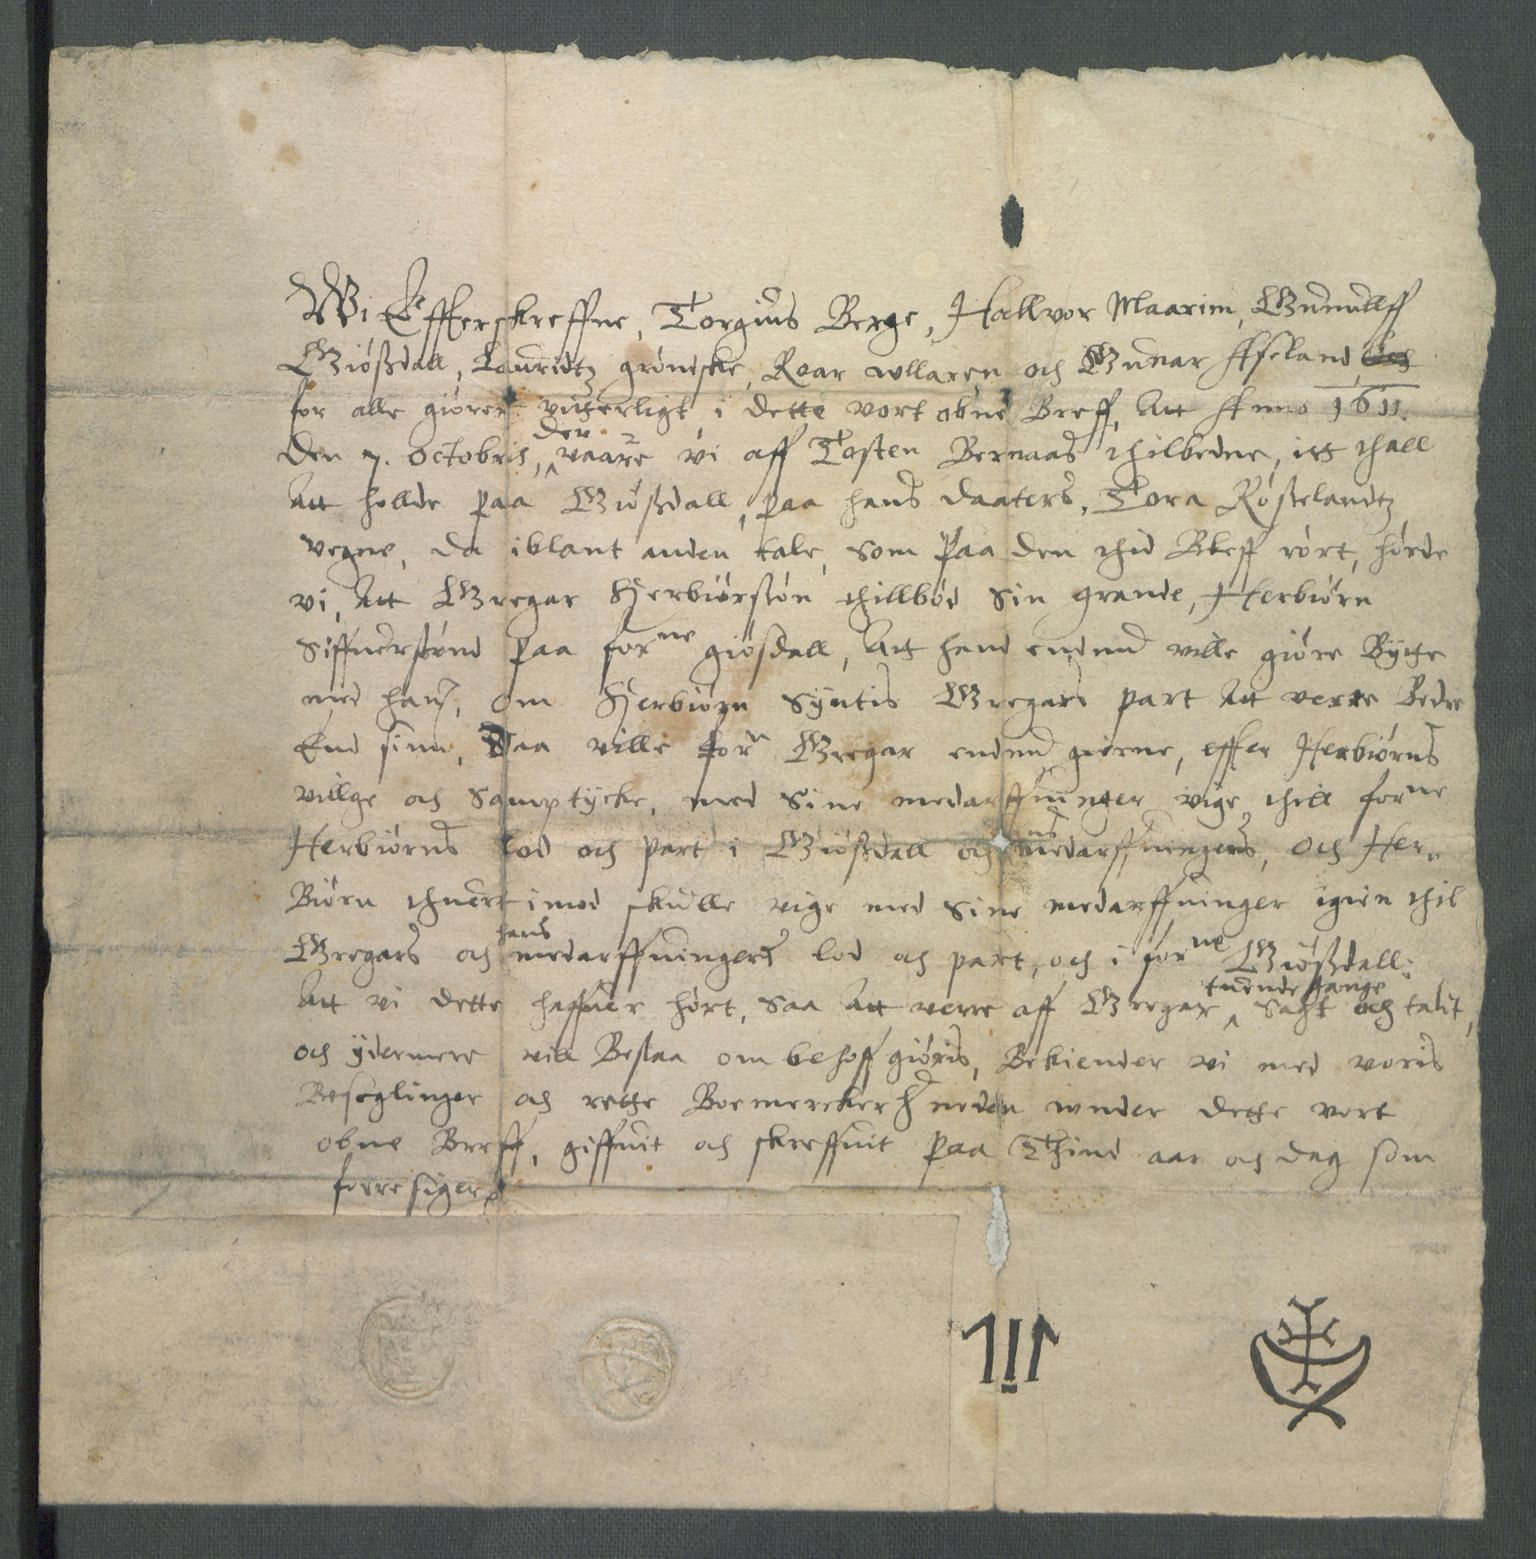 Wi Effterskreffne, Torgius Berge, Hallvor Maarim, Gunnulff
Giøsdall, Lauridtz grønske, Roar Ullaren och Gunnar Aseland
for alle giører viterligt, i dette vort obne Breff, Att Anno 1611.
Den 7. Octobris, der vaare vi aff Tosten Bernaas thilbedne, itt thall
Att holde paa Giøsdall, paa hans daaters, Tora Røsselandtz
vegne, da iblant anden tale, som paa den thid Bleff rørt, hørde
vi, Att Gregar Herbiørssøn thillbød Sin grande, Herbiørn
Siffuerssønd paa forne giøsdall, Att hand endnu ville giøre Bytte
med hans, om Herbiørn Syntis Gregars part Att verre Bedre
End sinn, Daa ville forn Gregar endnu gierne, effter Herbiørns
villge och Samptycke, med Sine medarffuinger vige thill forne
Herbiørns lod och part i Giøsdall och medarffuingers, och Her-
Biørn thuert imod skulle vige med Sine medarffuinger igien thil
Gregars och hans medarffuingers lod och part, och i forne Giøsdall:
Att vi dette haffuer hørt, saa Att verre aff Gregar tuende gange Sagt och talit,
och ydermere vill Bestaa om behoff giøris, Bekiender vi med voris
Beseglinger och rette Boemercker neden under dette vort
obne Breff, giffuit och skreffuit paa Thind aar och dag som
forre siger